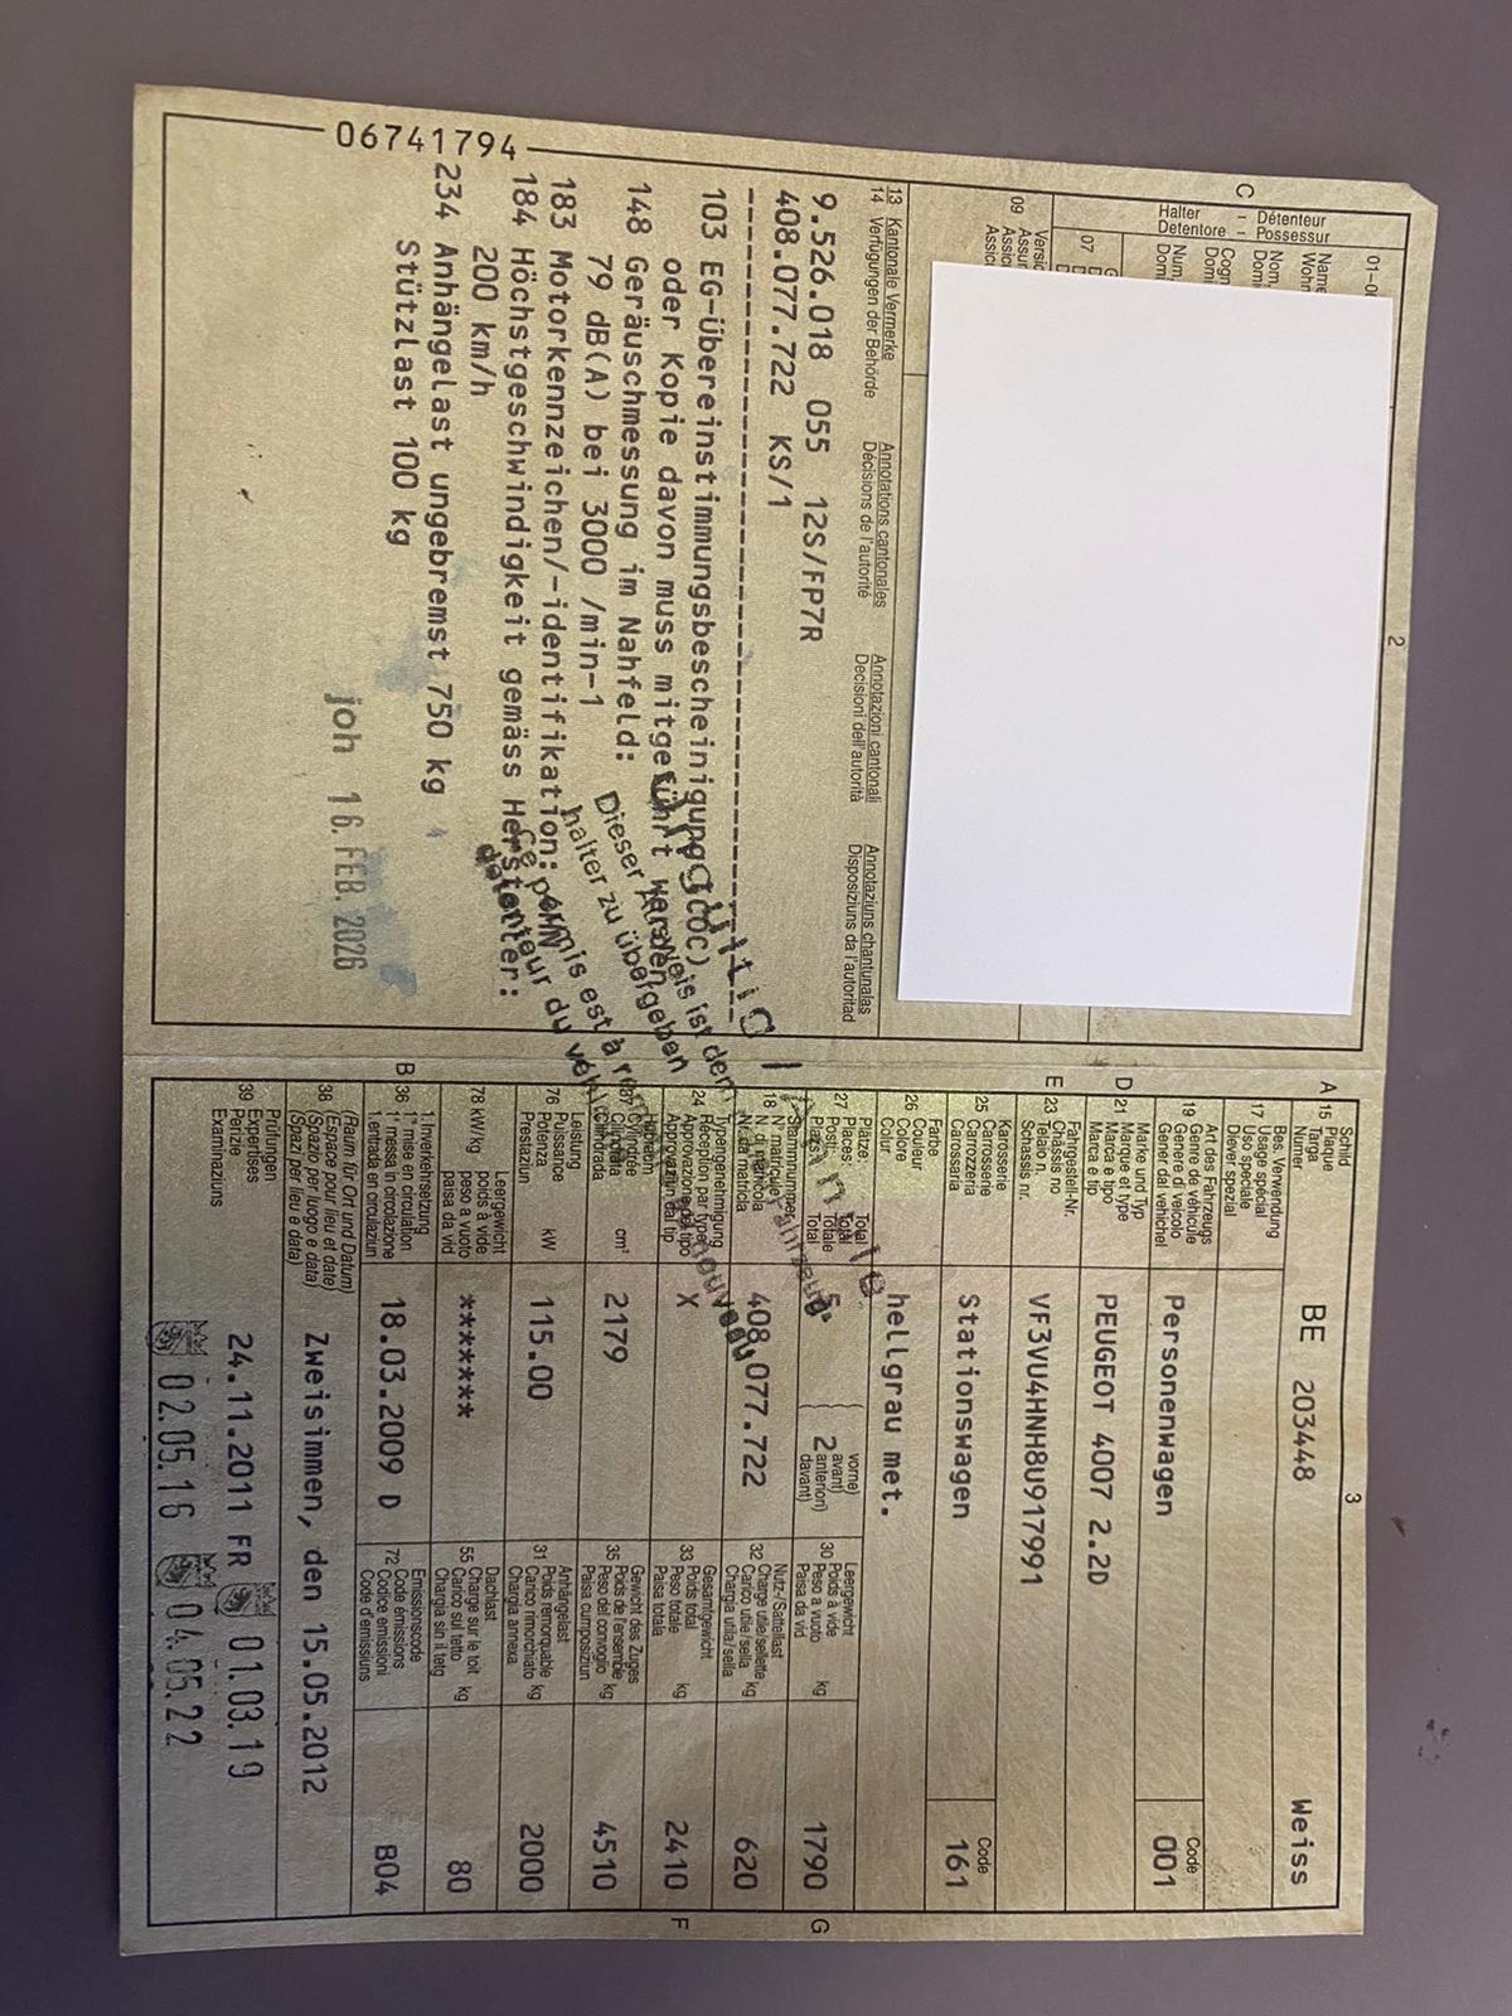 2
01-0
C
Halter - Détenteur
Detentore - Possessur
Name
Wohn
Nom,
Domi
Cogn
Domi
Num,
Dom
07
09
Versic
Assur
Assic
Assic
13 Kantonale Vermerke Annotations cantonales Annotazioni cantonali Annotaziuns chantunalas
14 Verfügungen der Behörde Décisions de l'autorité Decisioni dell'autorità Disposiziuns da l'autoritad
9.526.018 055 12S/FP7R
408.077.722 KS/1
103 EG-Übereinstimmungsbescheinigung (COC)
oder Kopie davon muss mitgeführt werden
148 Geräuschmessung im Nahfeld:
79 dB(A) bei 3000 /min-1
183 Motorkennzeichen/-identifikation: 4HN
184 Höchstgeschwindigkeit gemäss Hersteller:
200 km/h
234 Anhängelast ungebremst 750 kg
Stützlast 100 kg
joh 16. FEB. 2026
06741794
Ungültig / Annulé
Dieser Ausweis ist dem
halter zu übergeben
Ce permis est à
détenteur du
nouveau
3
A 15 Schild
Plaque
Targa
Numer
BE 203448 Weiss
17 Bes. Verwendung
Usage spécial
Uso speciale
Diever spezial
19 Art des Fahrzeugs
Genre de véhicule
Genere di veicolo
Gener dal vehichel
Personenwagen
Code
001
D 21 Marke und Typ
Marque et type
Marca e tipo
Marca e tip
PEUGEOT 4007 2.2D
E 23 Fahrgestell-Nr.
Châssis no
Telaio n.
Schassis nr.
VF3VU4HNH8U917991
25 Karosserie
Carrosserie
Carrozzeria
Carossaria
Stationswagen
Code
161
26 Farbe
Couleur
Colore
Colur
hellgrau met.
27 Plätze: Total
Places: Total
Posti: Totale
Plazs: Total
5
2
vorne)
avant)
anteriori)
davant)
30 Leergewicht
Poids à vide
Peso a vuoto
Paisa da vid
kg
1790
G
18 Stammnummer
N° matricule
N. di matricola
Nr. da matricla
408.077.722
32 Nutz-/Sattellast
Charge utile/sellette
Carico utile/sella
Chargia utila/sella
kg
620
24 Typengenehmigung
Réception par type
Approvazione del tipo
Approvaziun dal tip
X
33 Gesamtgewicht
Poids total
Peso totale
Paisa totala
kg
2410
F
37 Hubraum
Cylindrée
Cilindrata
Cilindrada
cm³
2179
35 Gewicht des Zuges
Poids de l'ensemble
Peso del convoglio
Paisa cumposiziun
kg
4510
76 Leistung
Puissance
Potenza
Prestaziun
kW
115.00
31 Anhängelast
Poids remorquable
Carico rimorchiato
Chargia annexa
kg
2000
78 kW/kg Leergewicht
poids à vide
peso a vuoto
paisa da vid
*******
55 Dachlast
Charge sur le toit
Carico sul tetto
Chargia sin il tetg
kg
80
B 36 1. Inverkehrsetzung
1re mise en circulation
1a messa in circolazione
1. entrada en circulaziun
18.03.2009 D
72 Emissionscode
Code émissions
Codice emissioni
Code d'emissiuns
B04
38 (Raum für Ort und Datum)
(Espace pour lieu et date)
(Spazio per luogo e data)
(Spazi per lieu e data)
Zweisimmen, den 15.05.2012
39 Prüfungen
Expertises
Perizie
Examinaziuns
24.11.2011 FR 01.03.19
02.05.16 04.05.22